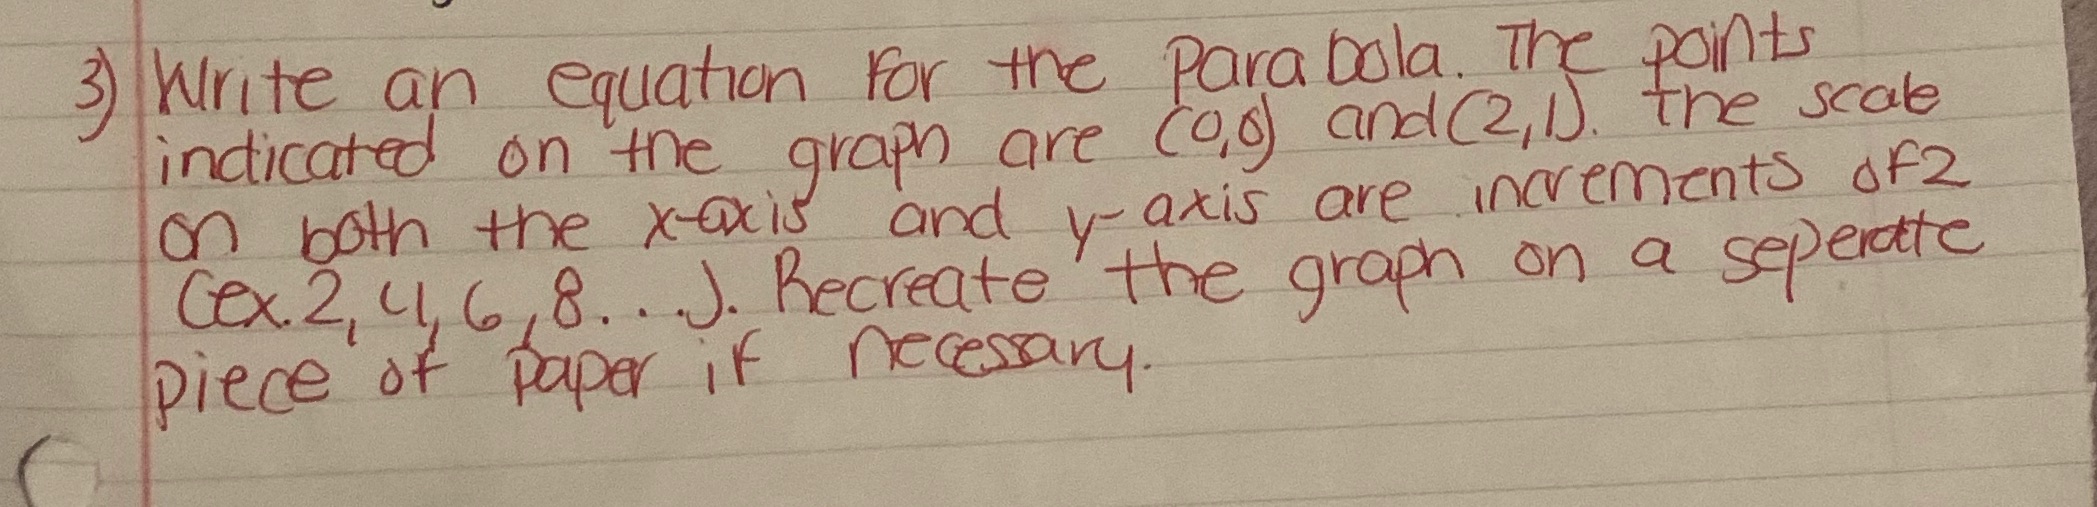 3) Write an equation for the parabola. The points
indicated on the graph are (0,0) and (2,1). The scale
on both the x-axis and y-axis are increments of 2
(ex. 2, 4, 6, 8...). Recreate the graph on a seperate
piece of paper if necessary.